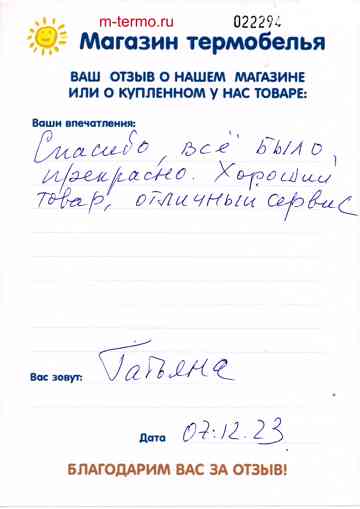 m-termo.ru
022294
Магазин термобелья
ВАШ ОТЗЫВ О НАШЕМ МАГАЗИНЕ
ИЛИ О КУПЛЕННОМ У НАС ТОВАРЕ:
Ваши впечатления:
Спасибо, всё было
прекрасно. Хороший
товар, отличный сервис
Вас зовут: Татьяна
Дата 07.12.23
БЛАГОДАРИМ ВАС ЗА ОТЗЫВ!